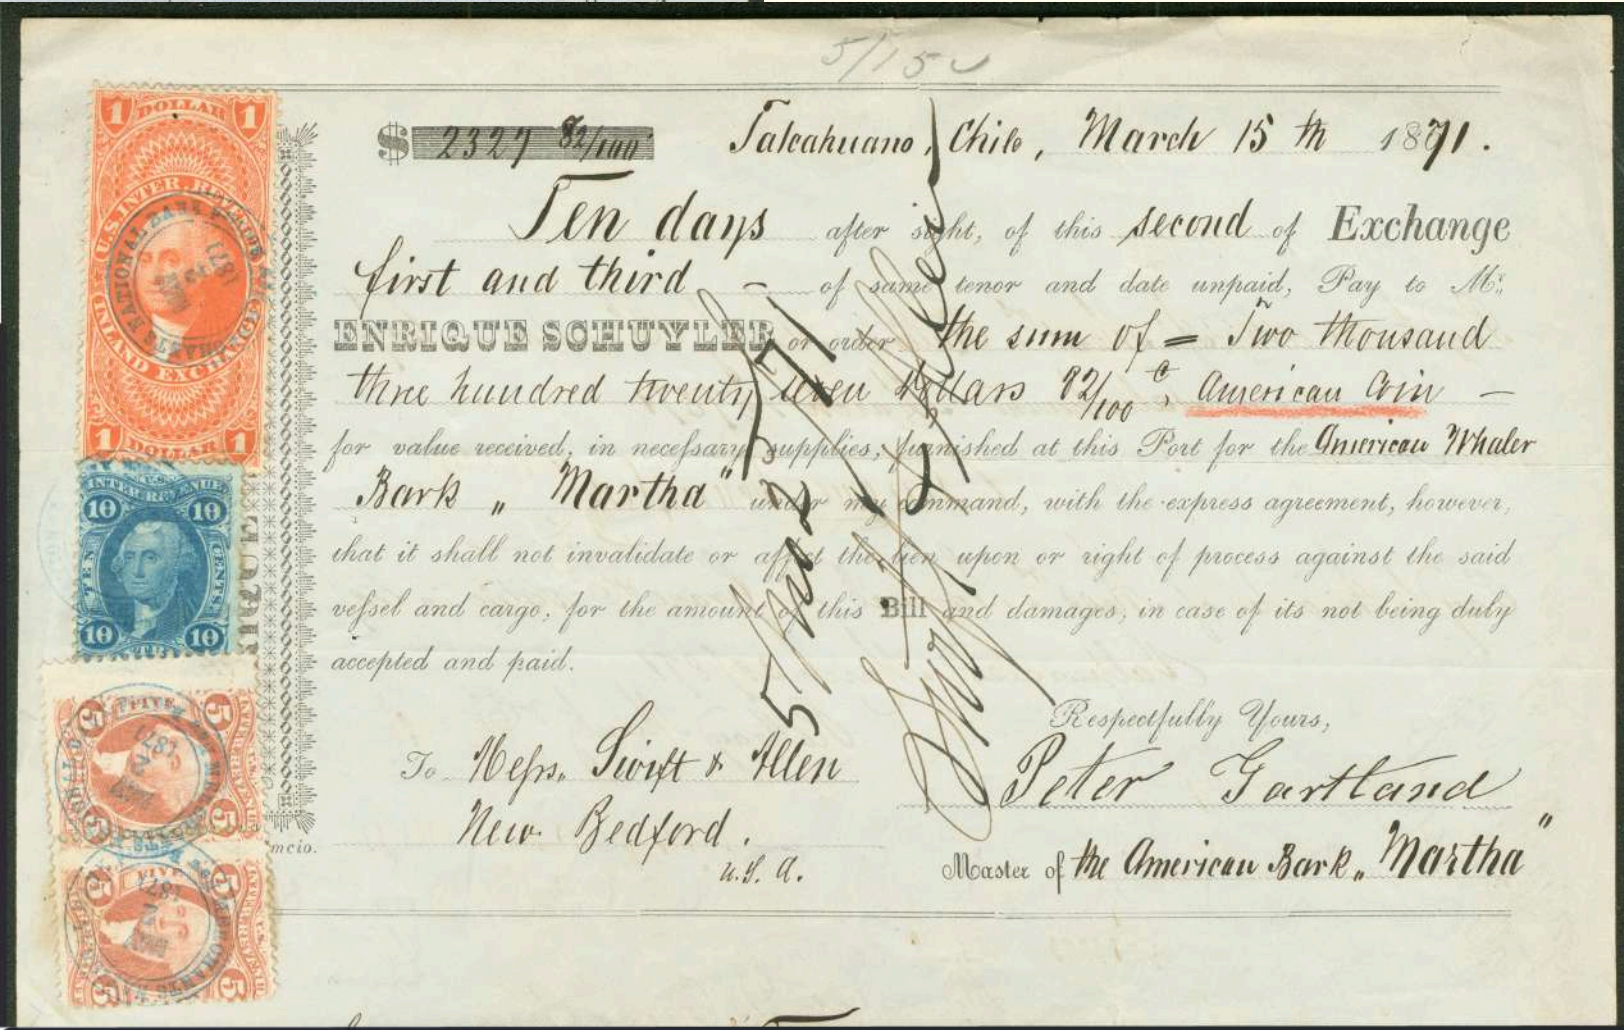 5/15
$ 2327 82/100 Talcahuano, Chile, March 15th 1871.
Ten days after sight, of this second of Exchange
first and third - of same tenor and date unpaid, Pay to Mr.
ENRIQUE SCHUYLER or order the sum of = Two thousand
three hundred twenty seven Dollars 82/100 c, American Coin -
for value received, in necessary supplies, furnished at this Port for the American Whaler
Bark „ Martha" under my command, with the express agreement, however,
that it shall not invalidate or affect the lien upon or right of process against the said
vessel and cargo, for the amount of this Bill and damages, in case of its not being duly
accepted and paid.
Respectfully Yours,
To Messrs. Swift & Allen
New Bedford.
U.S.A.
Peter Gartland
Master of the American Bark „ Martha"
mcio.
Swift & Allen
1 DOLLAR 1
U.S. INTER. REVENUE
INLAND EXCHANGE
1 DOLLAR 1
NATIONAL BANK
MERCHANTS
1871
U.S.
INTER REVENUE
10 10
TEN CENTS
10 10
5 FIVE 5
INTER REVENUE
5 5
1871
MAY
5 FIVE 5
U.S. INTER REVENUE
5 5
1871
MAY
MERCHANTS